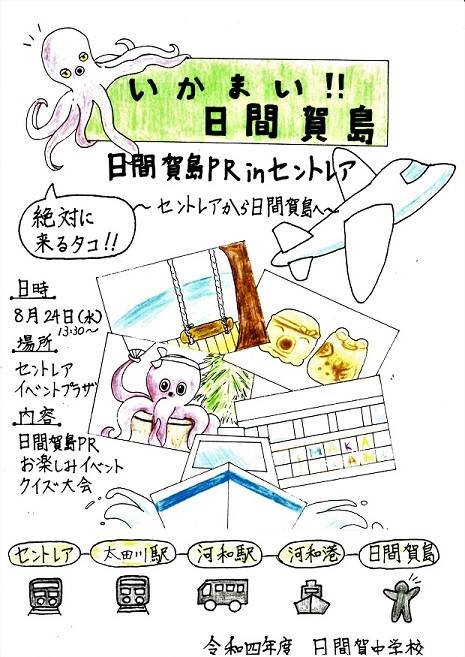 いかまい!!
日間賀島
日間賀島PRinセントレア
～セントレアから日間賀島へ～
絶対に
来るタコ!!
日時
8月24日(水)
13:30～
場所
セントレア
イベントプラザ
内容
日間賀島PR
お楽しみイベント
クイズ大会
IMAKA
セントレア 太田川駅 河和駅 河和港 日間賀島
令和四年度 日間賀中学校